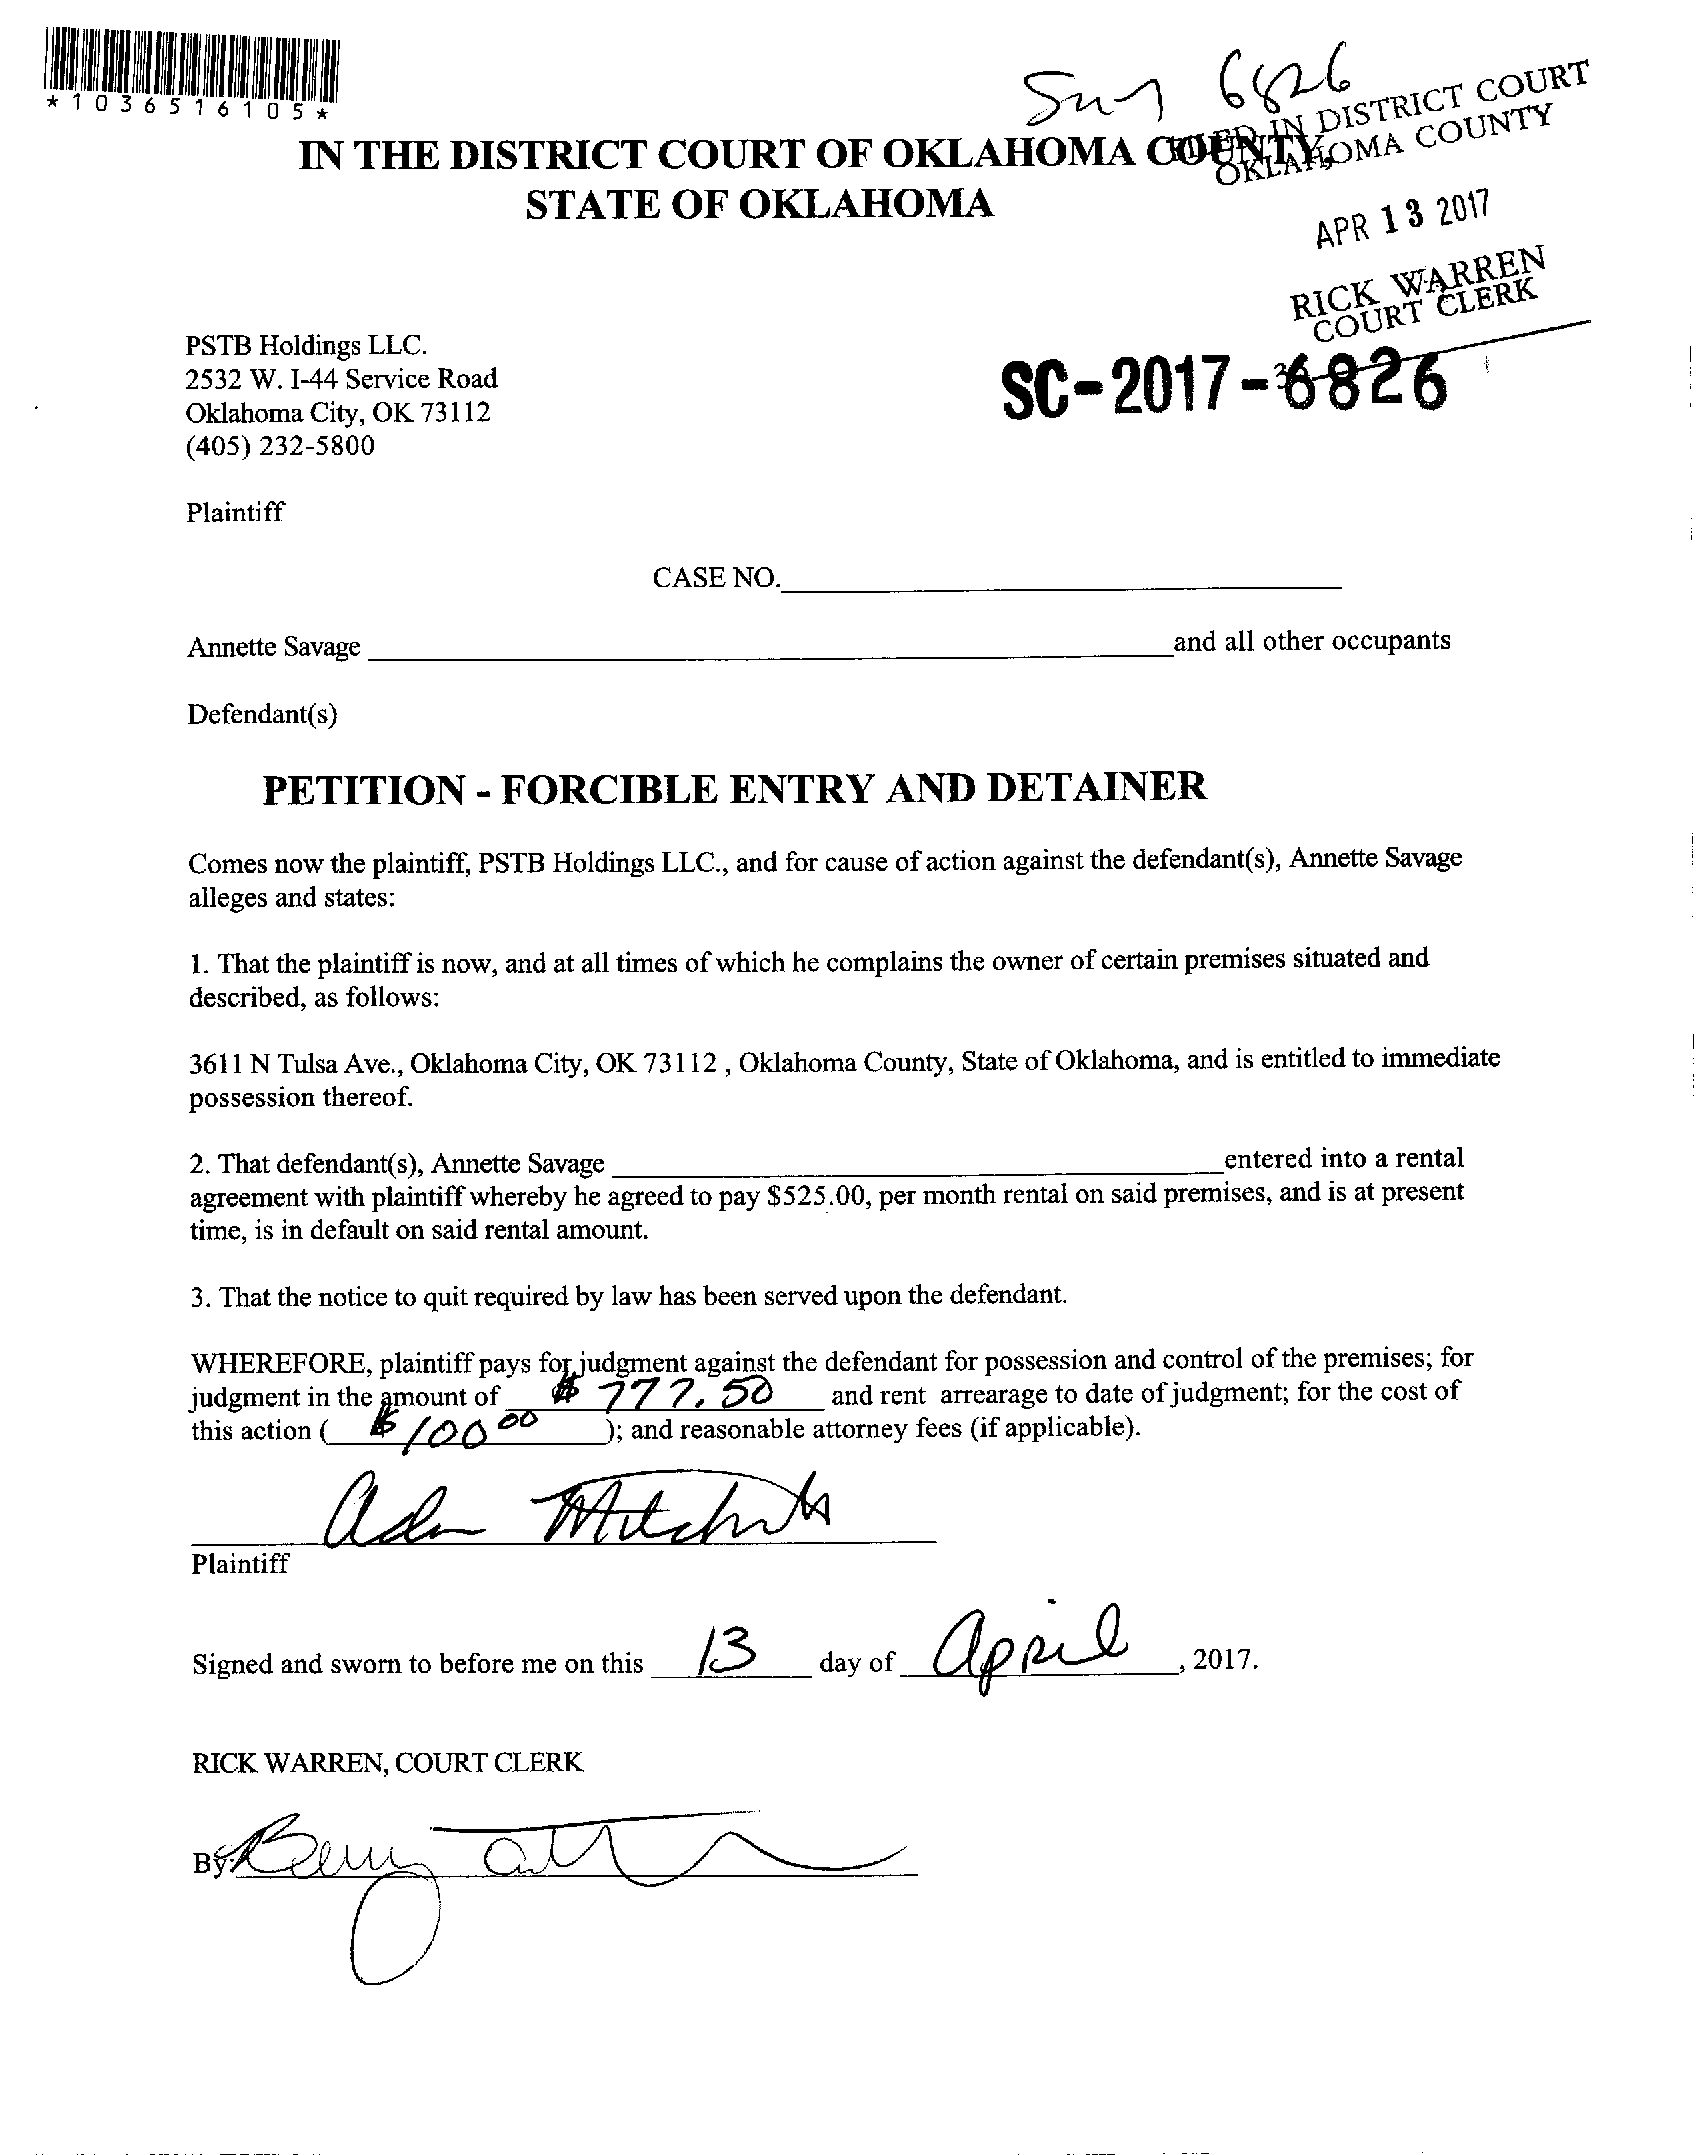 *1036516105*
6826
FILED IN DISTRICT COURT
OKLAHOMA COUNTY
IN THE DISTRICT COURT OF OKLAHOMA COUNTY,
STATE OF OKLAHOMA
APR 13 2017
RICK WARREN
COURT CLERK
PSTB Holdings LLC.
2532 W. I-44 Service Road
Oklahoma City, OK 73112
(405) 232-5800
SC-2017-6826
Plaintiff
CASE NO.
Annette Savage and all other occupants
Defendant(s)
PETITION - FORCIBLE ENTRY AND DETAINER
Comes now the plaintiff, PSTB Holdings LLC., and for cause of action against the defendant(s), Annette Savage
alleges and states:
1. That the plaintiff is now, and at all times of which he complains the owner of certain premises situated and
described, as follows:
3611 N Tulsa Ave., Oklahoma City, OK 73112 , Oklahoma County, State of Oklahoma, and is entitled to immediate
possession thereof.
2. That defendant(s), Annette Savage entered into a rental
agreement with plaintiff whereby he agreed to pay $525.00, per month rental on said premises, and is at present
time, is in default on said rental amount.
3. That the notice to quit required by law has been served upon the defendant.
WHEREFORE, plaintiff pays for judgment against the defendant for possession and control of the premises; for
judgment in the amount of $ 777.50 and rent arrearage to date of judgment; for the cost of
this action ( $100 00 ); and reasonable attorney fees (if applicable).
Plaintiff
Signed and sworn to before me on this 13 day of April, 2017.
RICK WARREN, COURT CLERK
By: